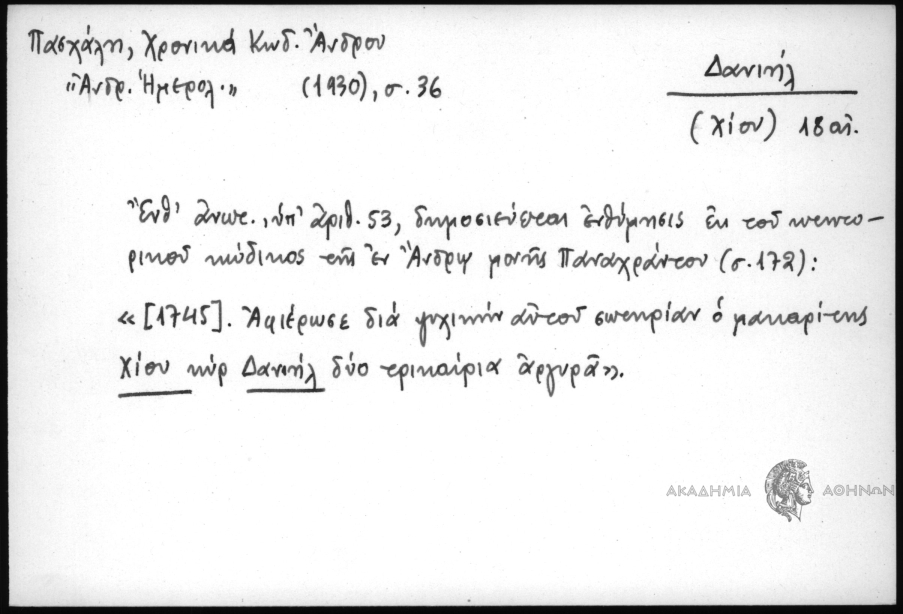 Πασχάλη, Χρονικά Κωδ. Ἄνδρου
"Ἀνδρ. Ἡμερολ." (1930), σ. 36
Δανιήλ
(Χίου) 18 αἰ.
Ἔνθ' ἀνωτ., ὑπ' ἀριθ. 53, δημοσιεύεται ἐνθύμησις ἐκ τοῦ κτιτο-
ρικοῦ κώδικος τῆς ἐν Ἄνδρῳ μονῆς Παναχράντου (σ. 172):
«[1745]. Ἀφιέρωσε διά ψυχικήν αὐτοῦ σωτηρίαν ὁ μακαρίτης
Χίου κύρ Δανιήλ δύο τρικαίρια ἀργυρᾶ».
ΑΚΑΔΗΜΙΑ ΑΘΗΝΩΝ